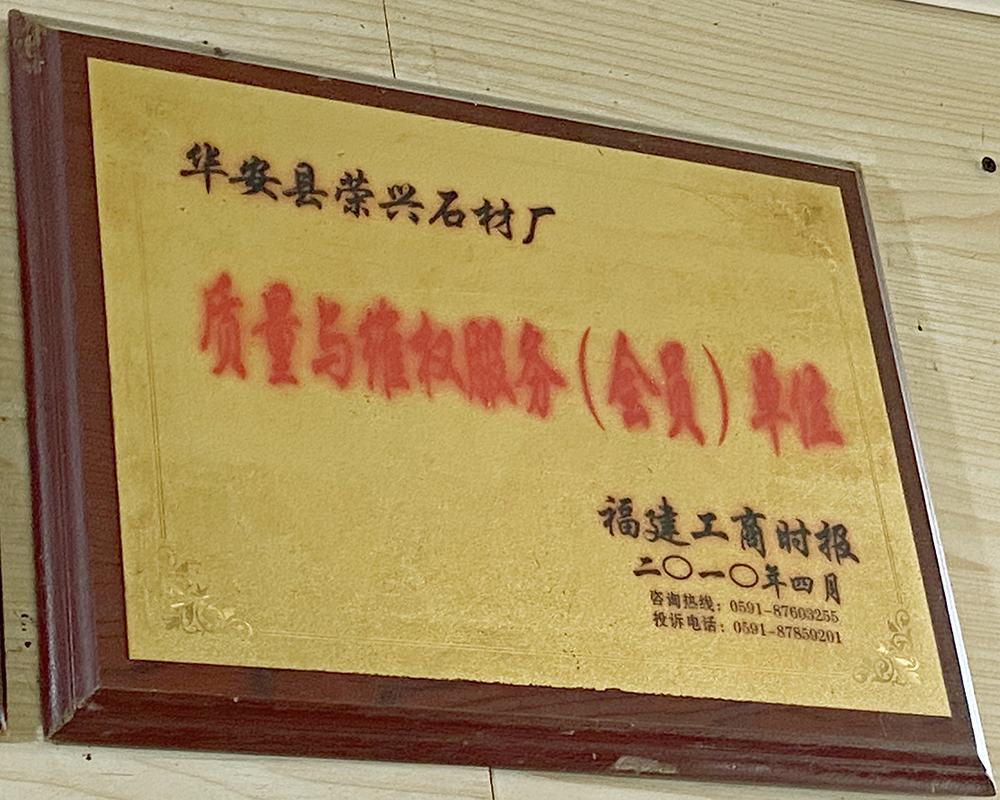 华安县荣兴石材厂
质量与维权服务(会员)单位
福建工商时报
二〇一〇年四月
咨询热线：0591-87603255
投诉电话：0591-87859201